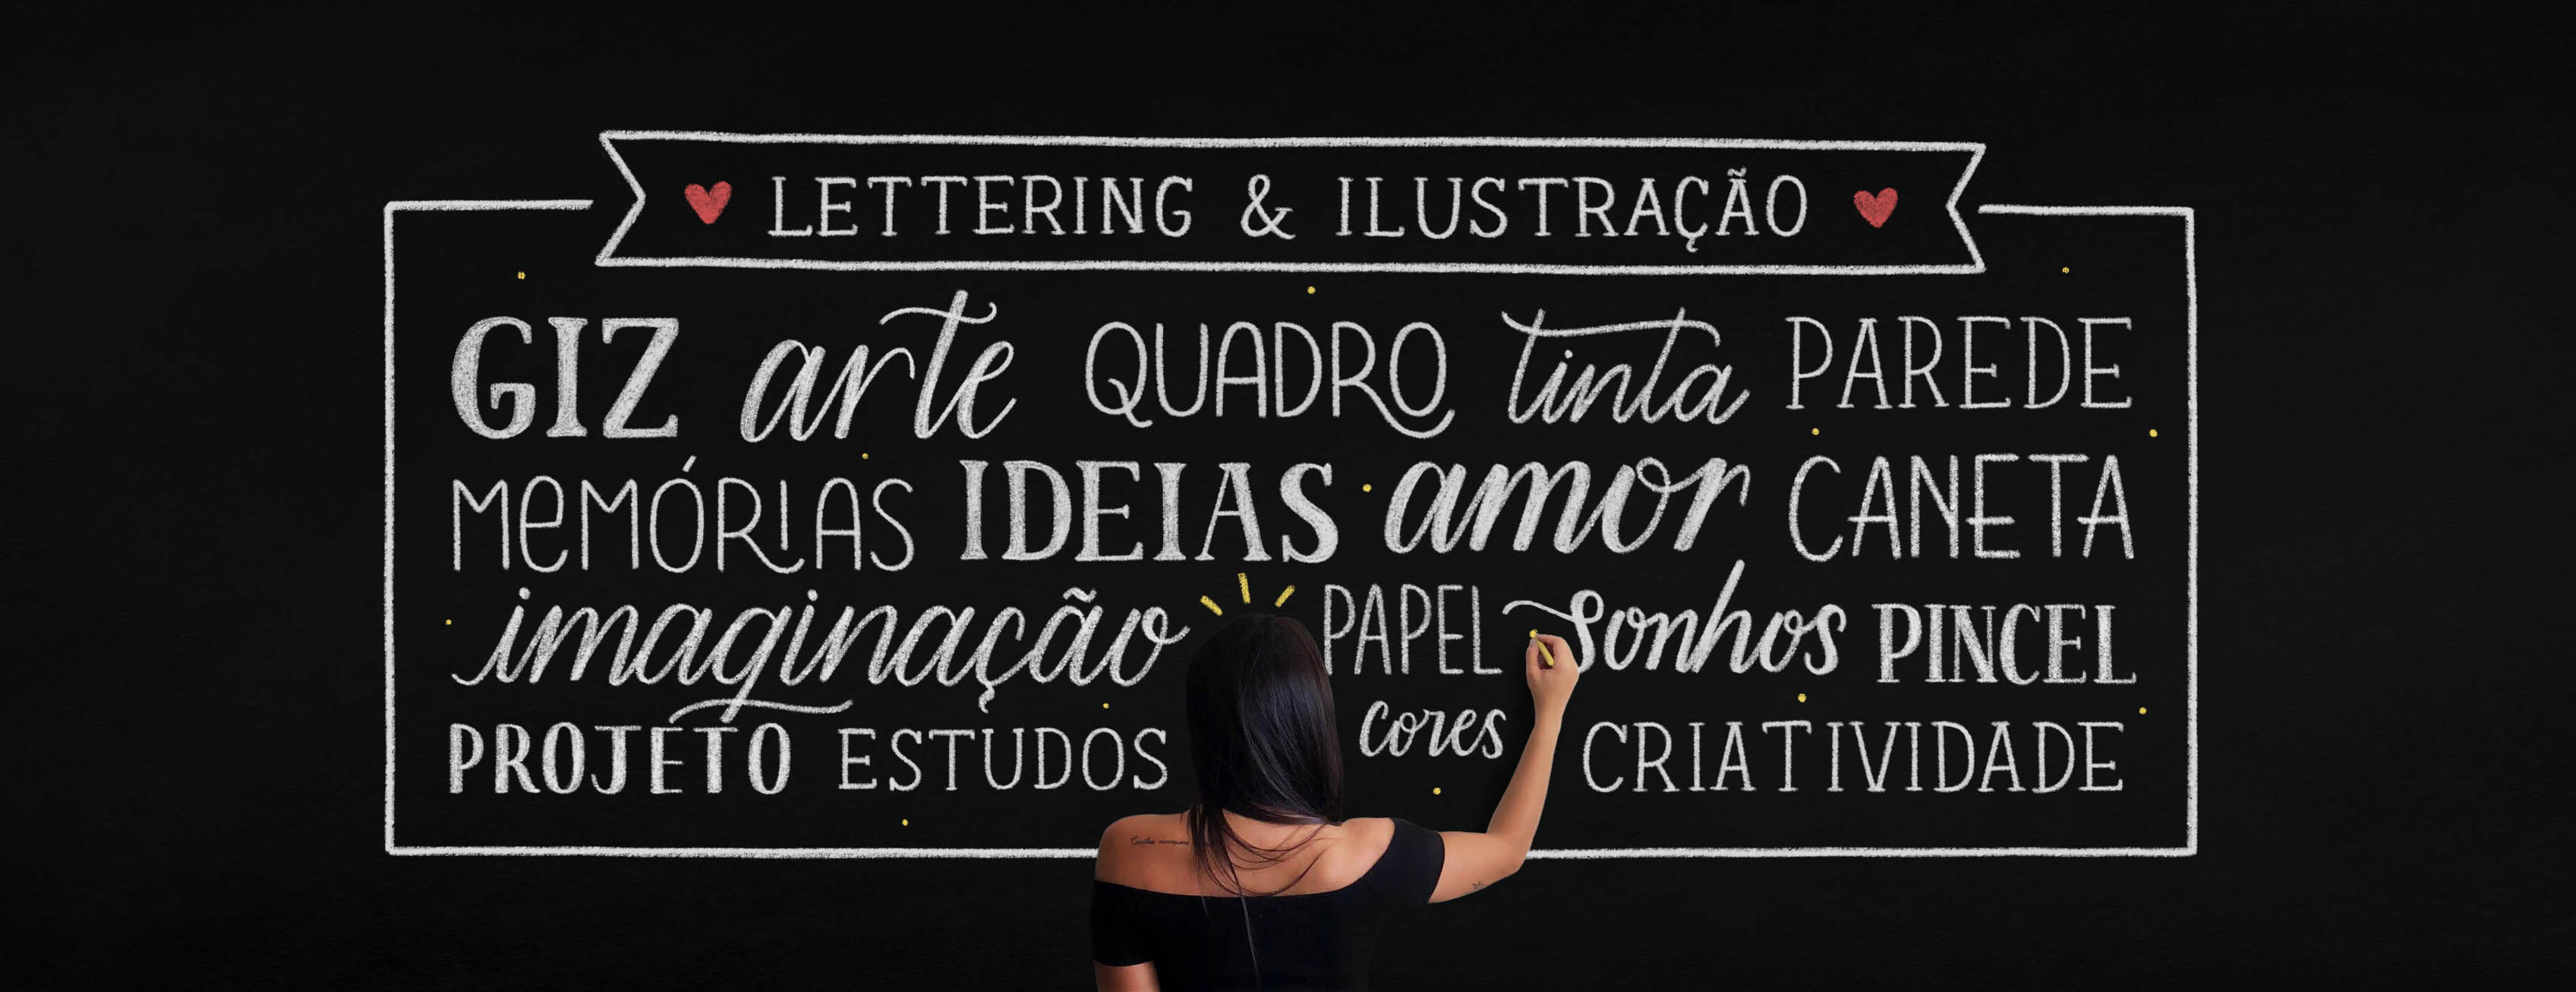 LETTERING & ILUSTRAÇÃO
GIZ arte QUADRO tinta PAREDE
MeMÓRIAS IDEIAS amor CANETA
imaginação PAPEL sonhos PINCEL
PROJETO ESTUDOS cores CRIATIVIDADE